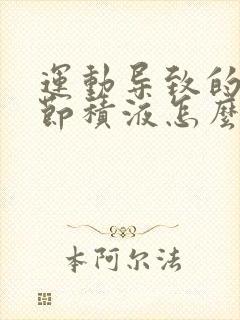 運動导致的
節積液怎麽
本阿尔法